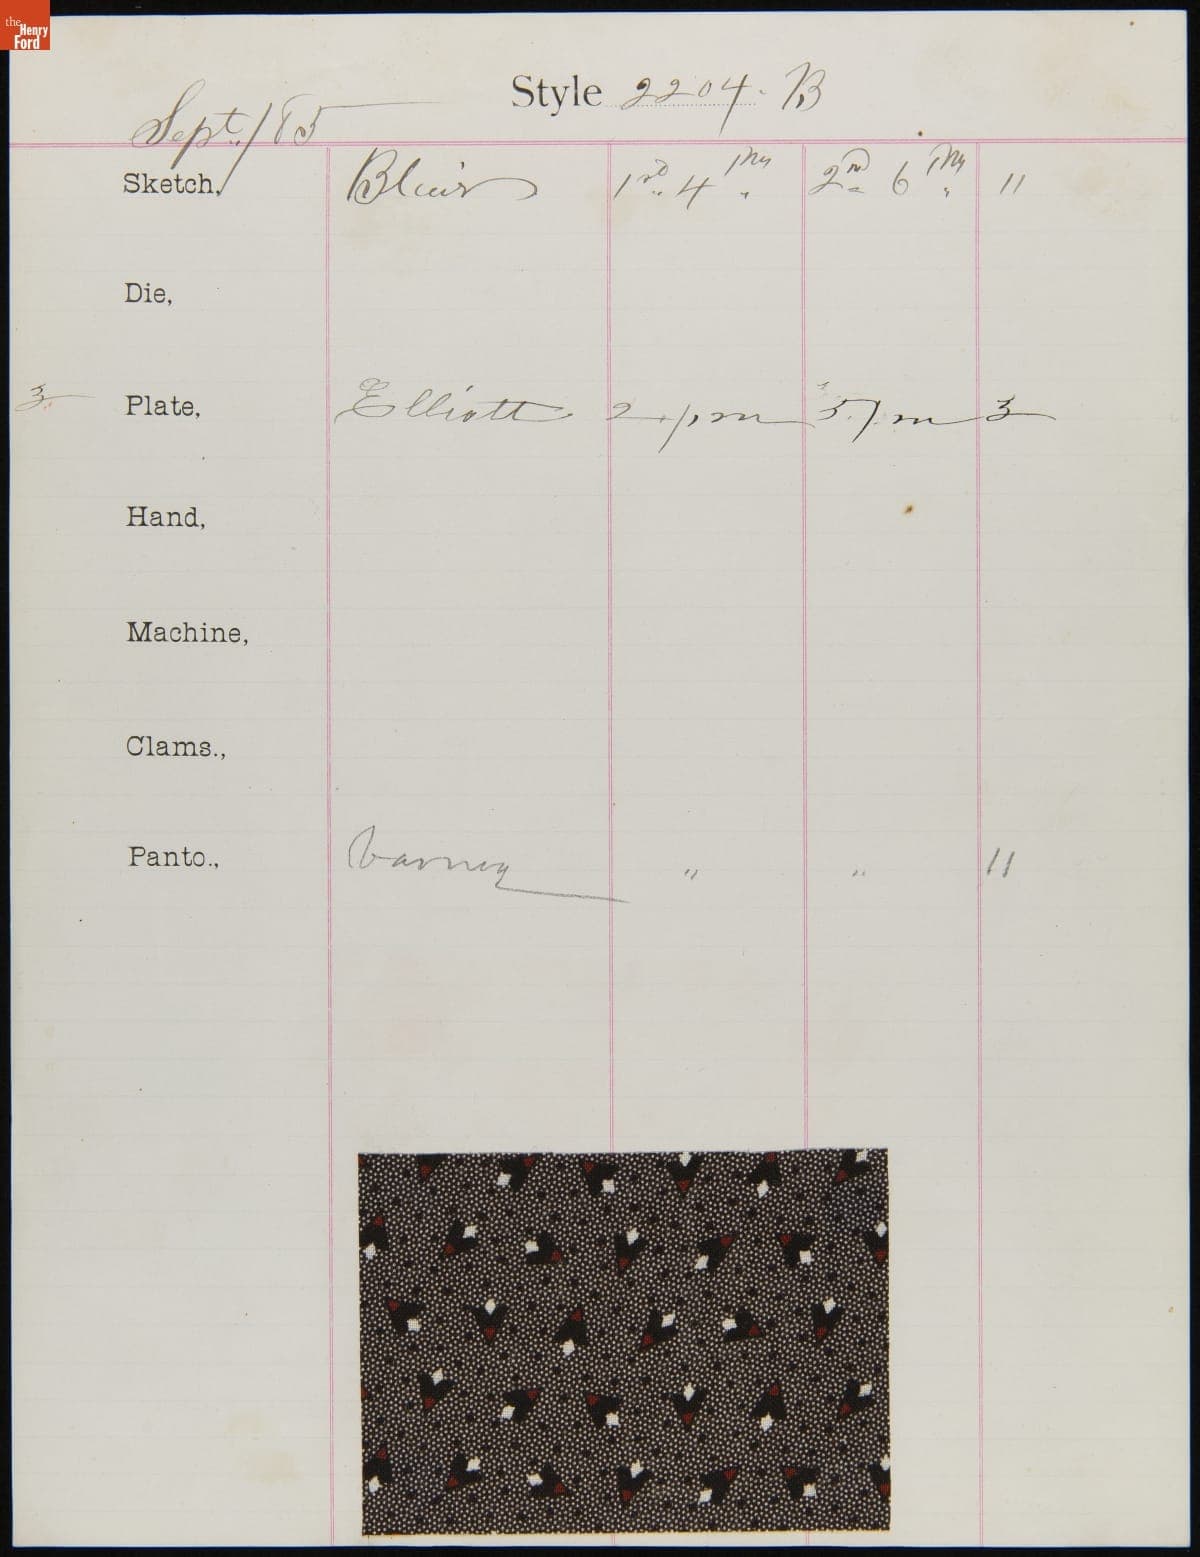 the Henry Ford
Style 2204-B
Sept. / 85
Sketch, Blair 1st 4 2nd 6 11
Die,
3 Plate, Elliott 2 pm 5 pm 3
Hand,
Machine,
Clams.,
Panto., Varney " " 11